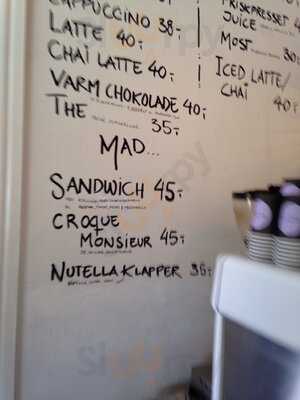 CAPPUCCINO 38,-
LATTE 40,-
CHAI LATTE 40,-
VARM CHOKOLADE 40,-
THE 35,-
MAD...
SANDWICH 45,-
CROQUE
MONSIEUR 45,-
NUTELLA KLAPPER 35,-
FRISKPRESSET
JUICE
MOST
ICED LATTE/
CHAI 40